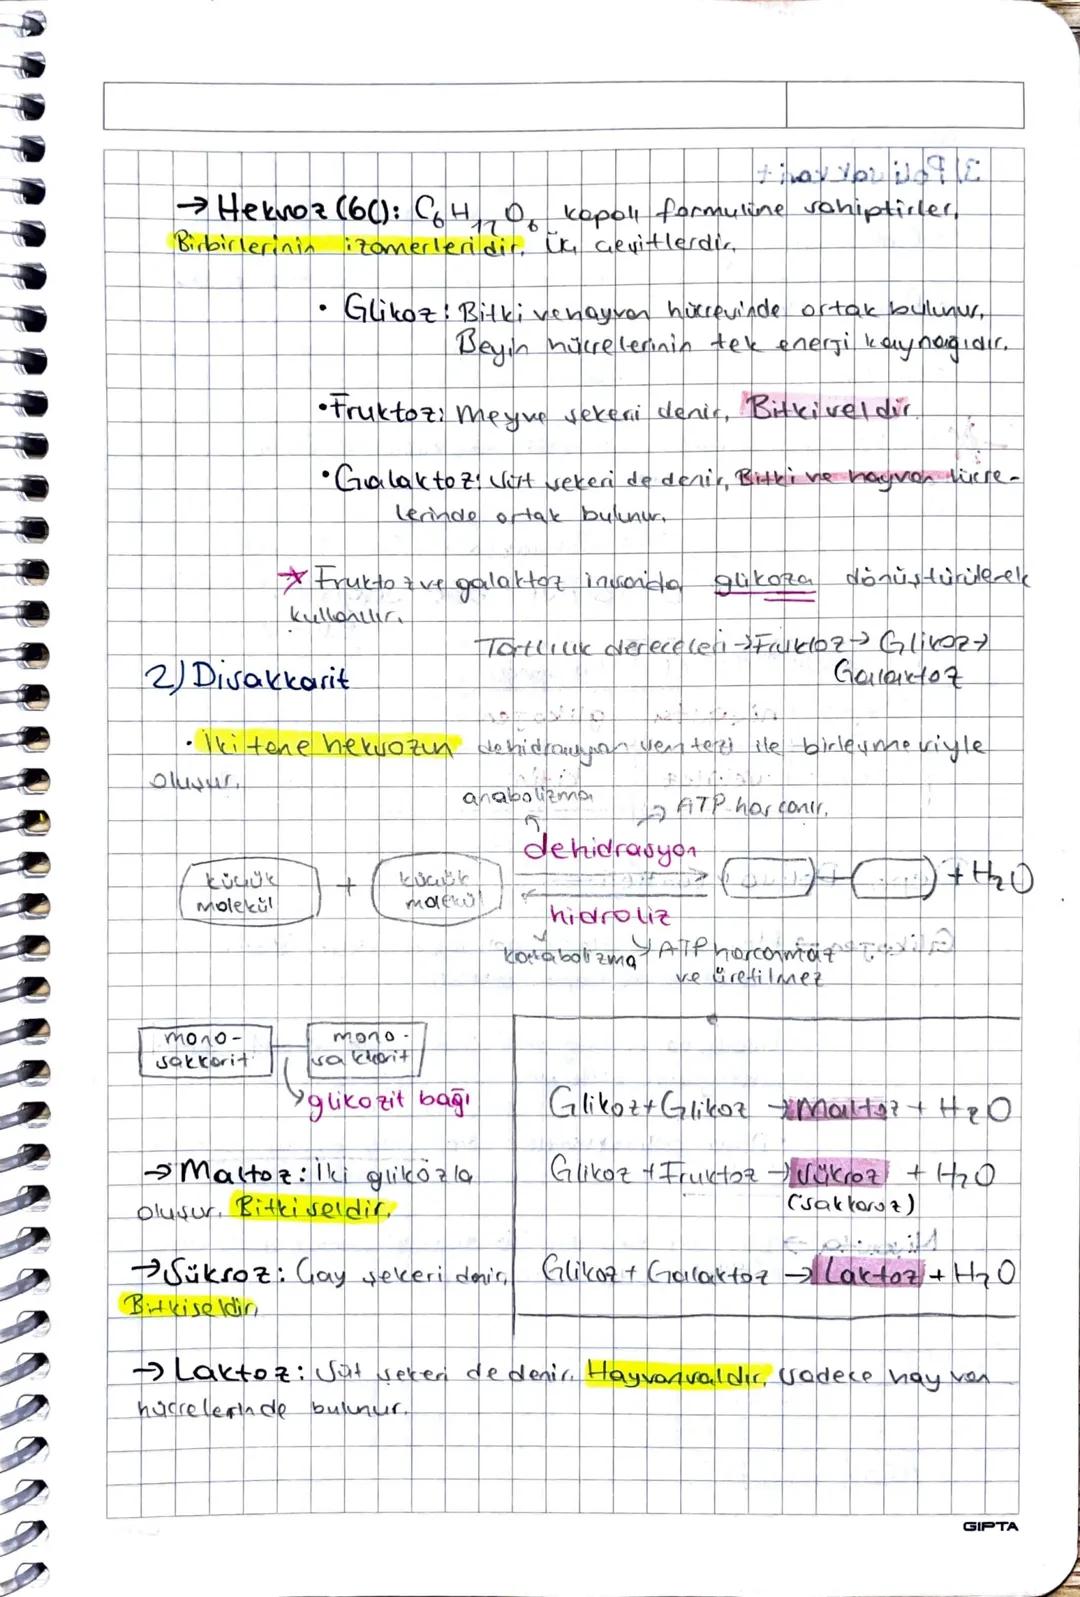 → Heksoz (6C): C₆H₁₂O₆ kapalı formülüne sahiptirler,
Birbirlerinin izomerleridir. üç çeşitlerdir.
• Glikoz: Bitki ve hayvan hücresinde ortak bulunur,
Beyin hücrelerinin tek enerji kaynağıdır.
• Fruktoz: Meyve şekeri denir, Bitkiseldir.
• Galaktoz: Süt şekeri de denir, Bitki ve hayvan hücre-
lerinde ortak bulunur.
* Fruktoz ve galaktoz insanda glikoza dönüştürülerek
kullanılır.
Tatlılık dereceleri → Fruktoz → Glikoz →
Galaktoz
2) Disakkarit
• İki tane heksozun dehidrasyon sentezi ile birleşmesiyle
oluşur.
anabolizma → ATP harcanır.
dehidrasyon
küçük molekül + küçük molekül + H₂O
hidroliz
katabolizma ATP harcanmaz
ve üretilmez
mono-sakkarit mono-sakkarit
glikozit bağı
Glikoz + Glikoz → Maltoz + H₂O
→ Maltoz: İki glikozla
oluşur. Bitkiseldir.
Glikoz + Fruktoz → Sükroz + H₂O
(sakkaroz)
→ Sükroz: Çay şekeri denir,
Bitkiseldir,
Glikoz + Galaktoz → Laktoz + H₂O
→ Laktoz: Süt şekeri de denir. Hayvansaldır, sadece hayvan
hücrelerinde bulunur.
GIPTA